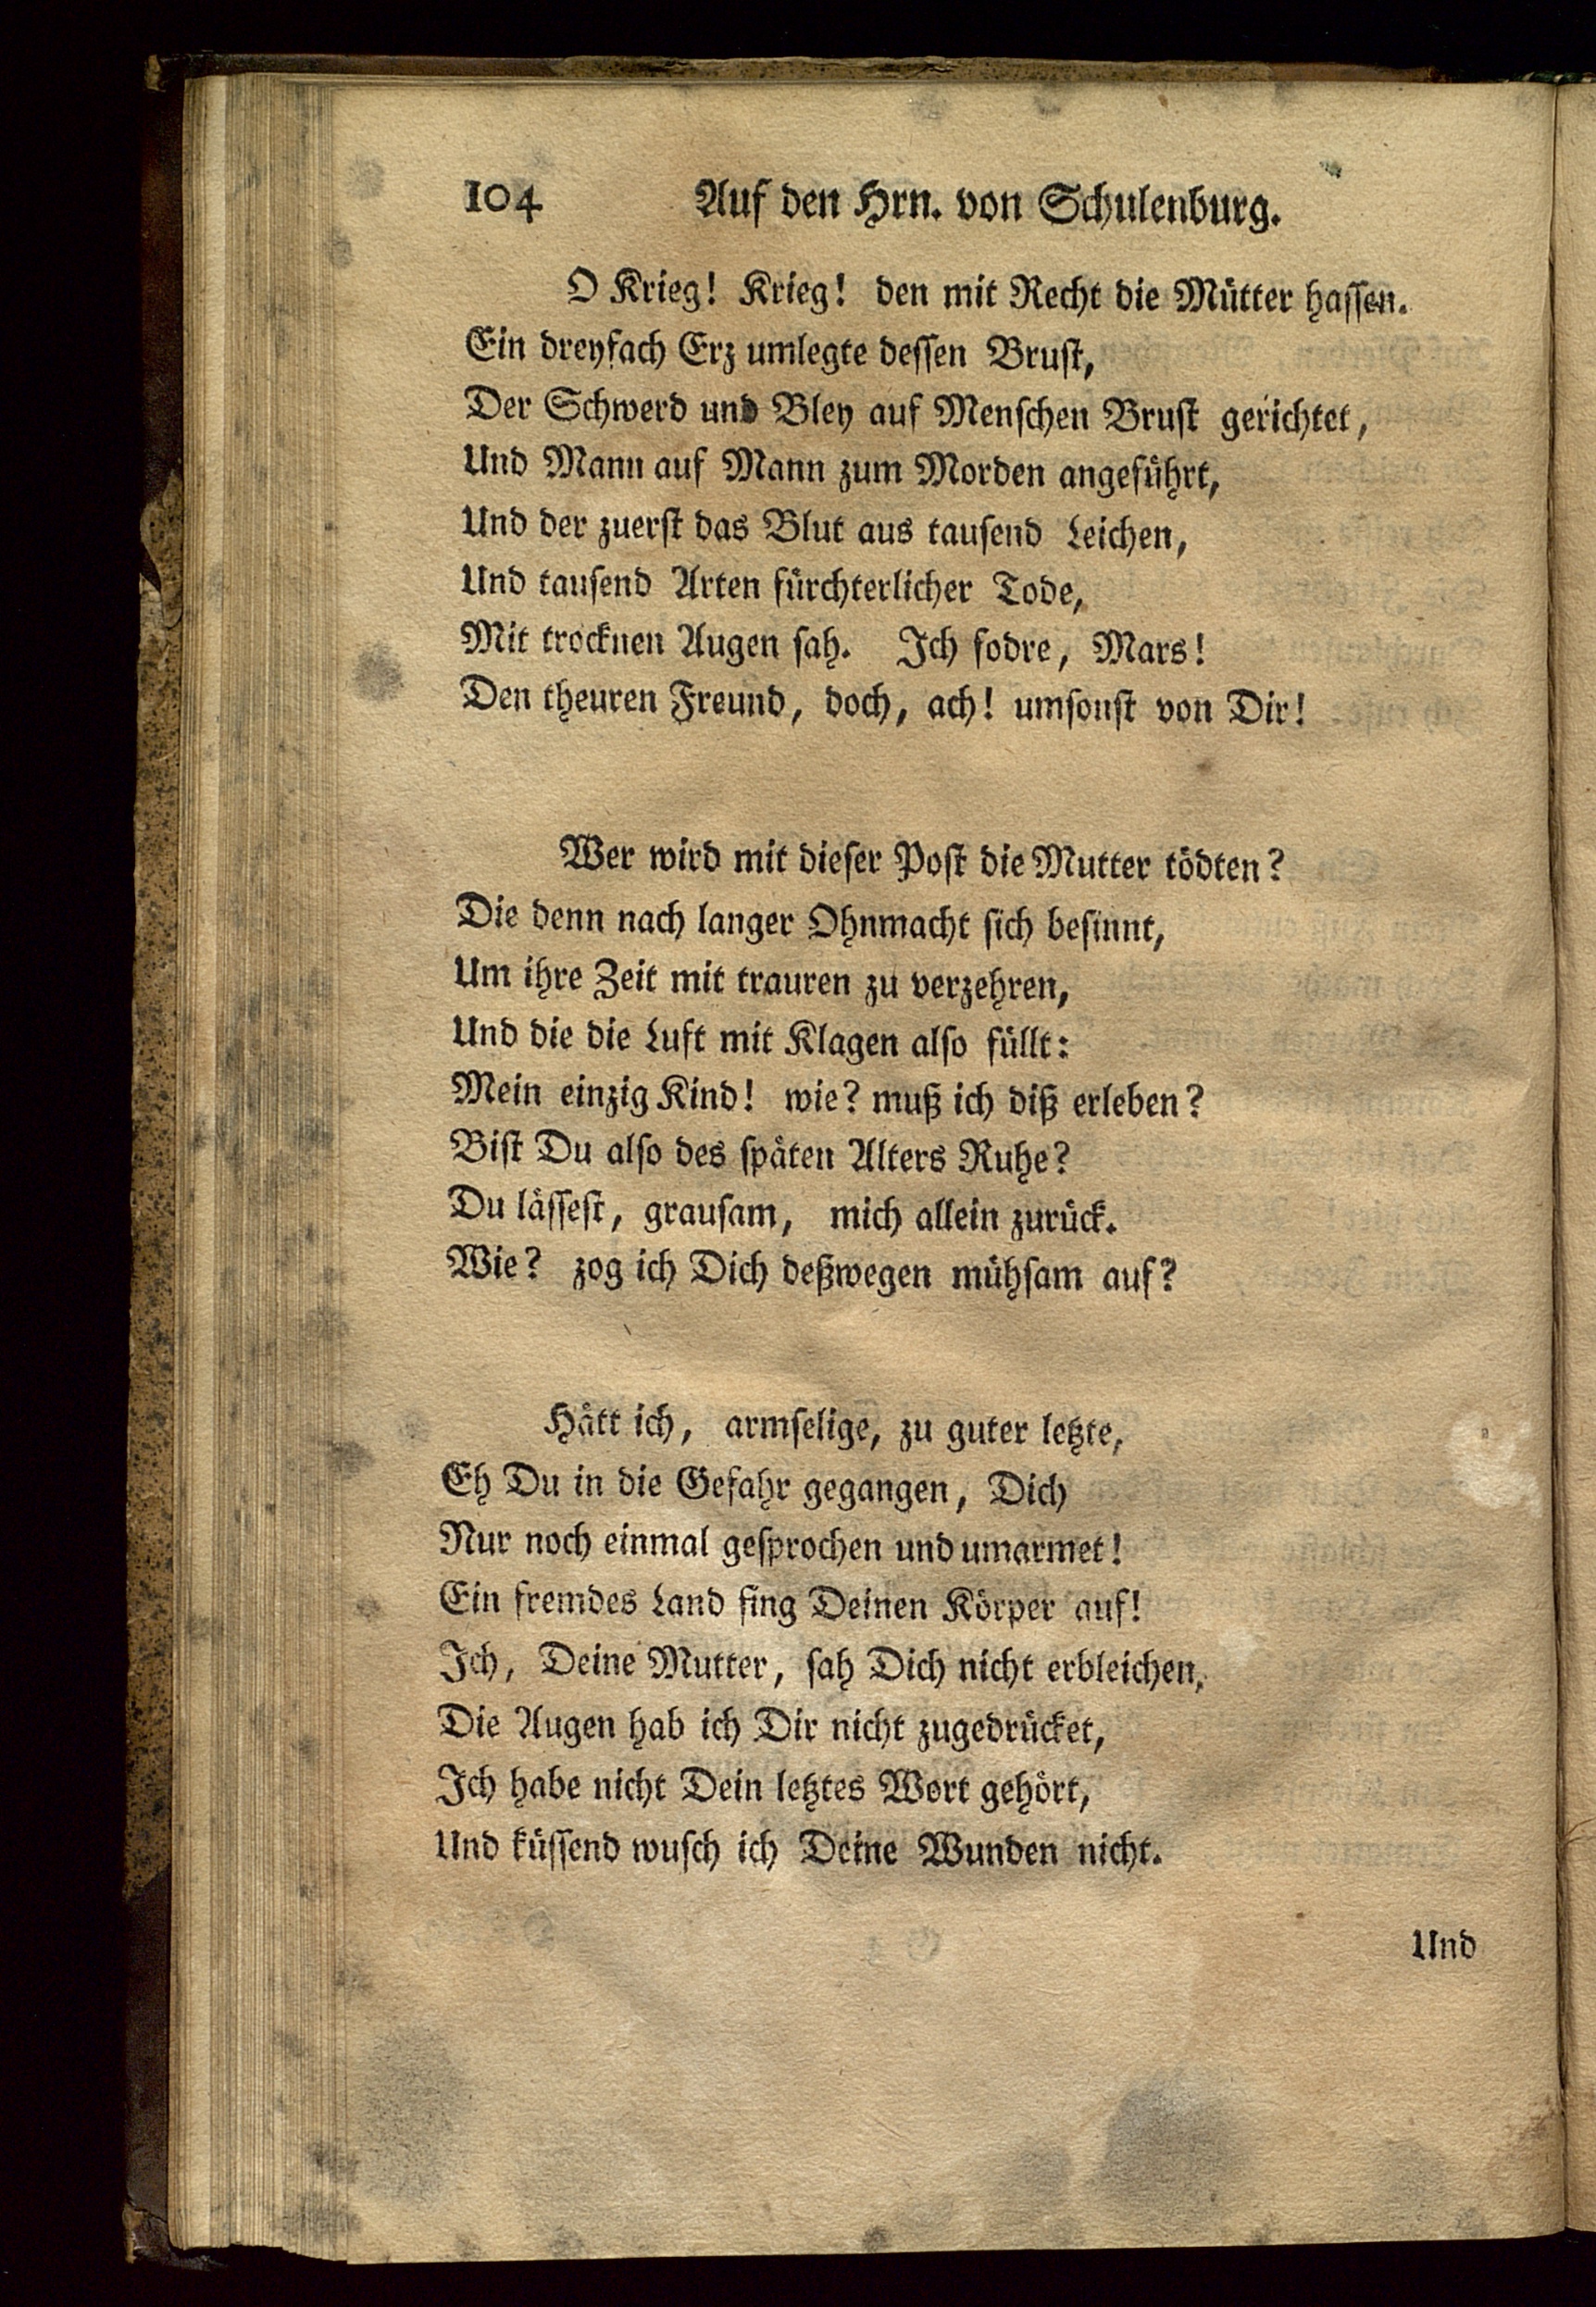 104 Auf den Hrn. von Schulenburg.
O Krieg! Krieg! den mit Recht die Mütter hassen.
Ein dreyfach Erz umlegte dessen Brust,
Der Schwerd und Bley auf Menschen Brust gerichtet,
Und Mann auf Mann zum Morden angeführt,
Und der zuerst das Blut aus tausend Leichen,
Und tausend Arten fürchterlicher Tode,
Mit trocknen Augen sah. Ich fodre, Mars!
Den theuren Freund, doch, ach! umsonst von Dir!
Wer wird mit dieser Post die Mutter tödten?
Die denn nach langer Ohnmacht sich besinnt,
Um ihre Zeit mit trauren zu verzehren,
Und die die Luft mit Klagen also füllt:
Mein einzig Kind! wie? muß ich diß erleben?
Bist Du also des späten Alters Ruhe?
Du lässest, grausam, mich allein zurück.
Wie? zog ich Dich deßwegen mühsam auf?
Hätt ich, armselige, zu guter letzte,
Eh Du in die Gefahr gegangen, Dich
Nur noch einmal gesprochen und umarmet!
Ein fremdes Land fing Deinen Körper auf!
Ich, Deine Mutter, sah Dich nicht erbleichen,
Die Augen hab ich Dir nicht zugedrücket,
Ich habe nicht Dein letztes Wort gehört,
Und küssend wusch ich Deine Wunden nicht.
Und